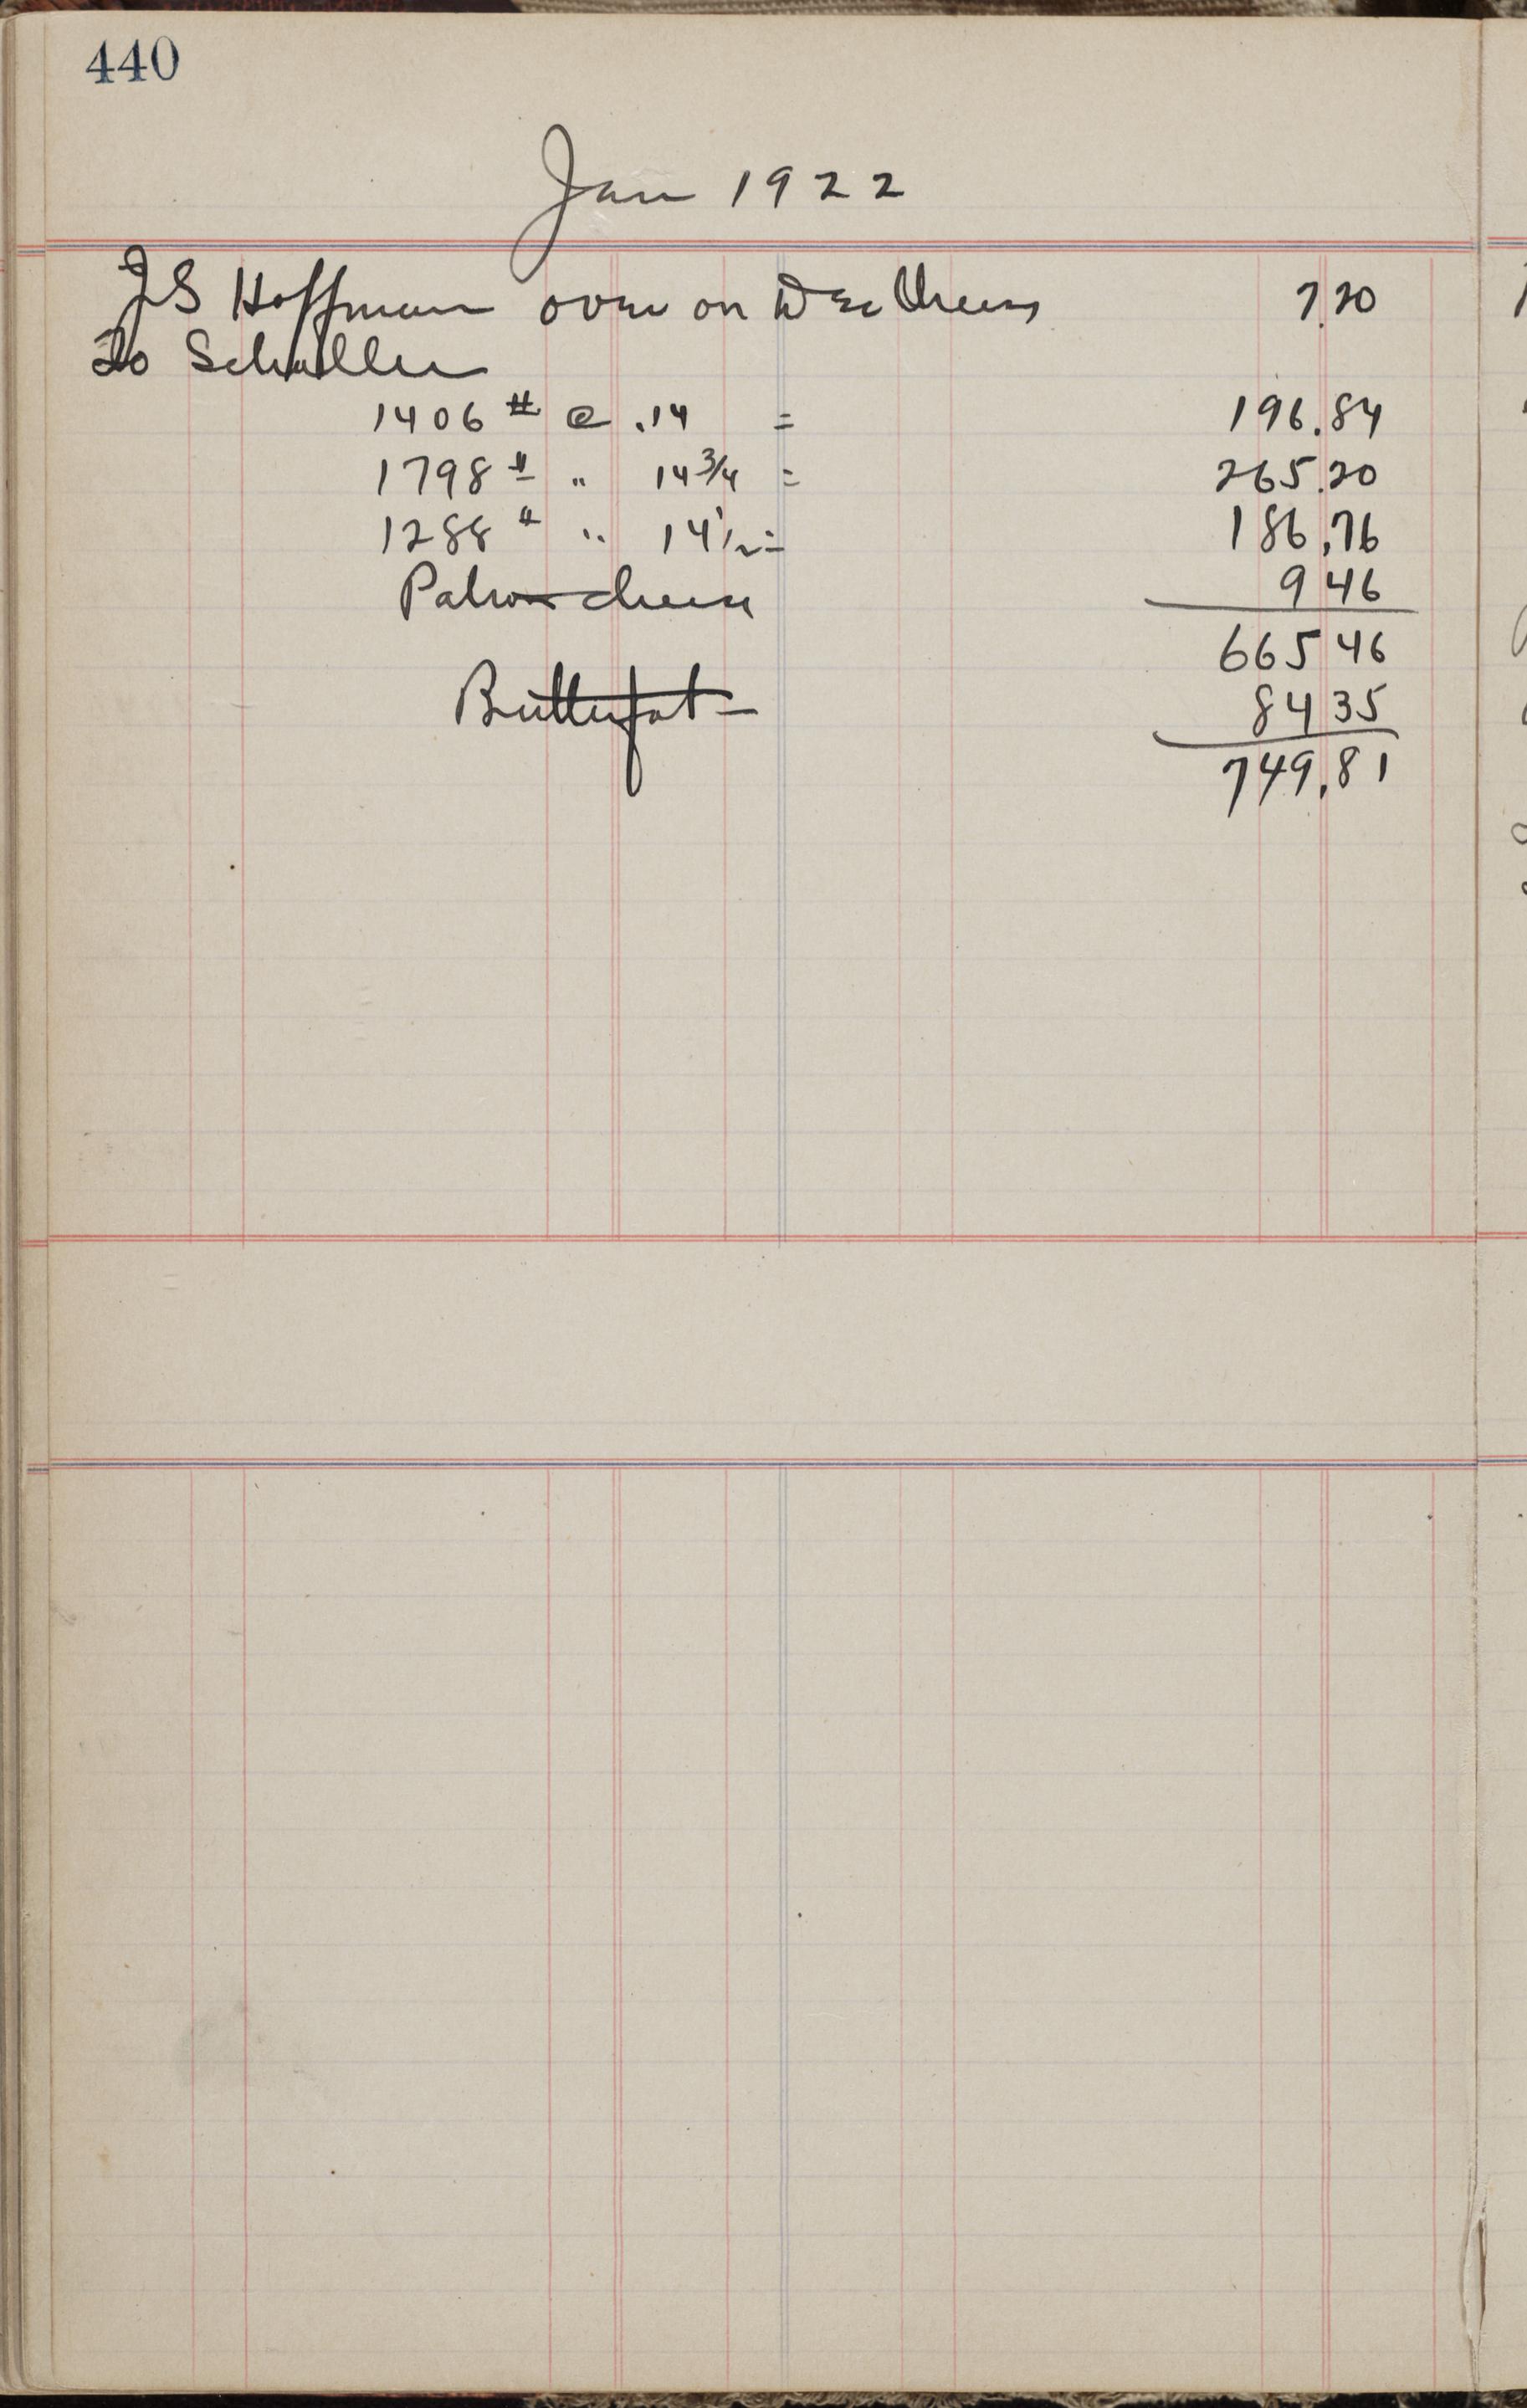 440
Jan 1922
JS Hoffman over on Dec Cheese 7.20
To Schaller
1406 # @ .14 = 196.84
1798 # " 14 3/4 = 265.20
1288 # " 14 1/2 = 186.76
Patron cheese 9 46
665 46
Butterfat 84 35
749.81